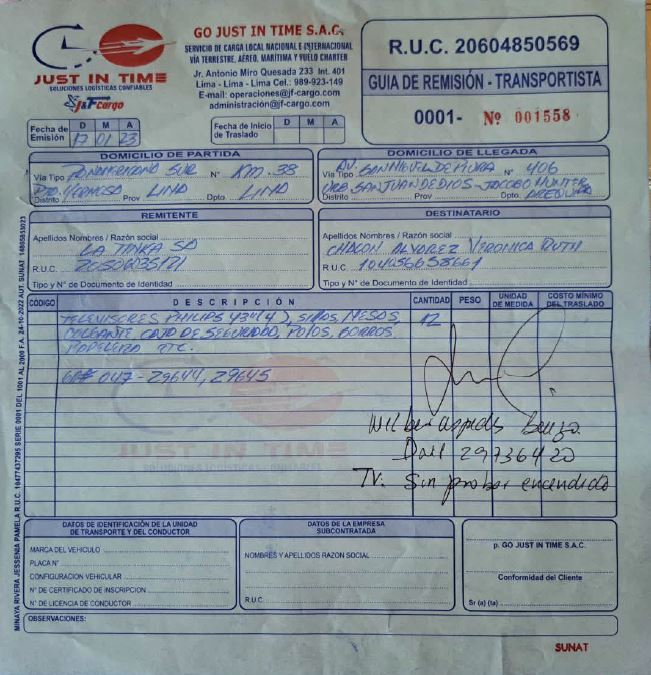 JUST IN TIME
SOLUCIONES LOGÍSTICAS CONFIABLES
J&F Cargo
GO JUST IN TIME S.A.C.
SERVICIO DE CARGA LOCAL NACIONAL E INTERNACIONAL
VÍA TERRESTRE, AÉREO, MARÍTIMA Y VUELO CHARTER
Jr. Antonio Miro Quesada 233 Int. 401
Lima - Lima - Lima Cel.: 989-923-149
E-mail: operaciones@jf-cargo.com
administración@jf-cargo.com
R.U.C. 20604850569
GUIA DE REMISIÓN - TRANSPORTISTA
0001- Nº 001558
Fecha de Emisión D M A
17 01 23
Fecha de Inicio de Traslado D M A
DOMICILIO DE PARTIDA
Vía Tipo Panamericana Sur N° KM. 38
Pto. Hermosa Lima Lima
Distrito Prov Dpto.
DOMICILIO DE LLEGADA
Vía Tipo AV. SAN MIGUEL DE PIURA N° 406
URB SAN JUAN DE DIOS - JACOBO HUNTER
Distrito Prov Dpto. AREQUIPA
REMITENTE
Apellidos Nombres / Razón social
LA TINKA SA
R.U.C.
Tipo y N° de Documento de Identidad
DESTINATARIO
Apellidos Nombres / Razón social
CHACON ALVAREZ VERONICA RUTH
R.U.C. 104056658661
Tipo y N° de Documento de Identidad
CÓDIGO DESCRIPCIÓN CANTIDAD PESO UNIDAD DE MEDIDA COSTO MÍNIMO DEL TRASLADO
TELEVISORES PHILIPS 43" (4), SILLAS, MESAS, 12
COLGANTE CAJA DE SEGURIDAD, POLOS, GORROS,
PAPELERA ETC.
GR# 047 - 29644, 29645
Wilber
Dni 29736420
TV: Sin probar encendido
JUST IN TIME
SOLUCIONES LOGÍSTICAS CONFIABLES
DATOS DE IDENTIFICACIÓN DE LA UNIDAD
DE TRANSPORTE Y DEL CONDUCTOR
MARCA DEL VEHICULO
PLACA N°
CONFIGURACION VEHICULAR
N° DE CERTIFICADO DE INSCRIPCION
N° DE LICENCIA DE CONDUCTOR
DATOS DE LA EMPRESA
SUBCONTRATADA
NOMBRES Y APELLIDOS RAZON SOCIAL
R.U.C.
p. GO JUST IN TIME S.A.C.
Conformidad del Cliente
Sr (a) (ta)
OBSERVACIONES:
SUNAT
MINAYA RIVERA JESSENIA PAMELA R.U.C. 10477437295 SERIE 0001 DEL 1001 AL 2000 F.A. 24-10-2022 AUT. SUNAT 14865853023